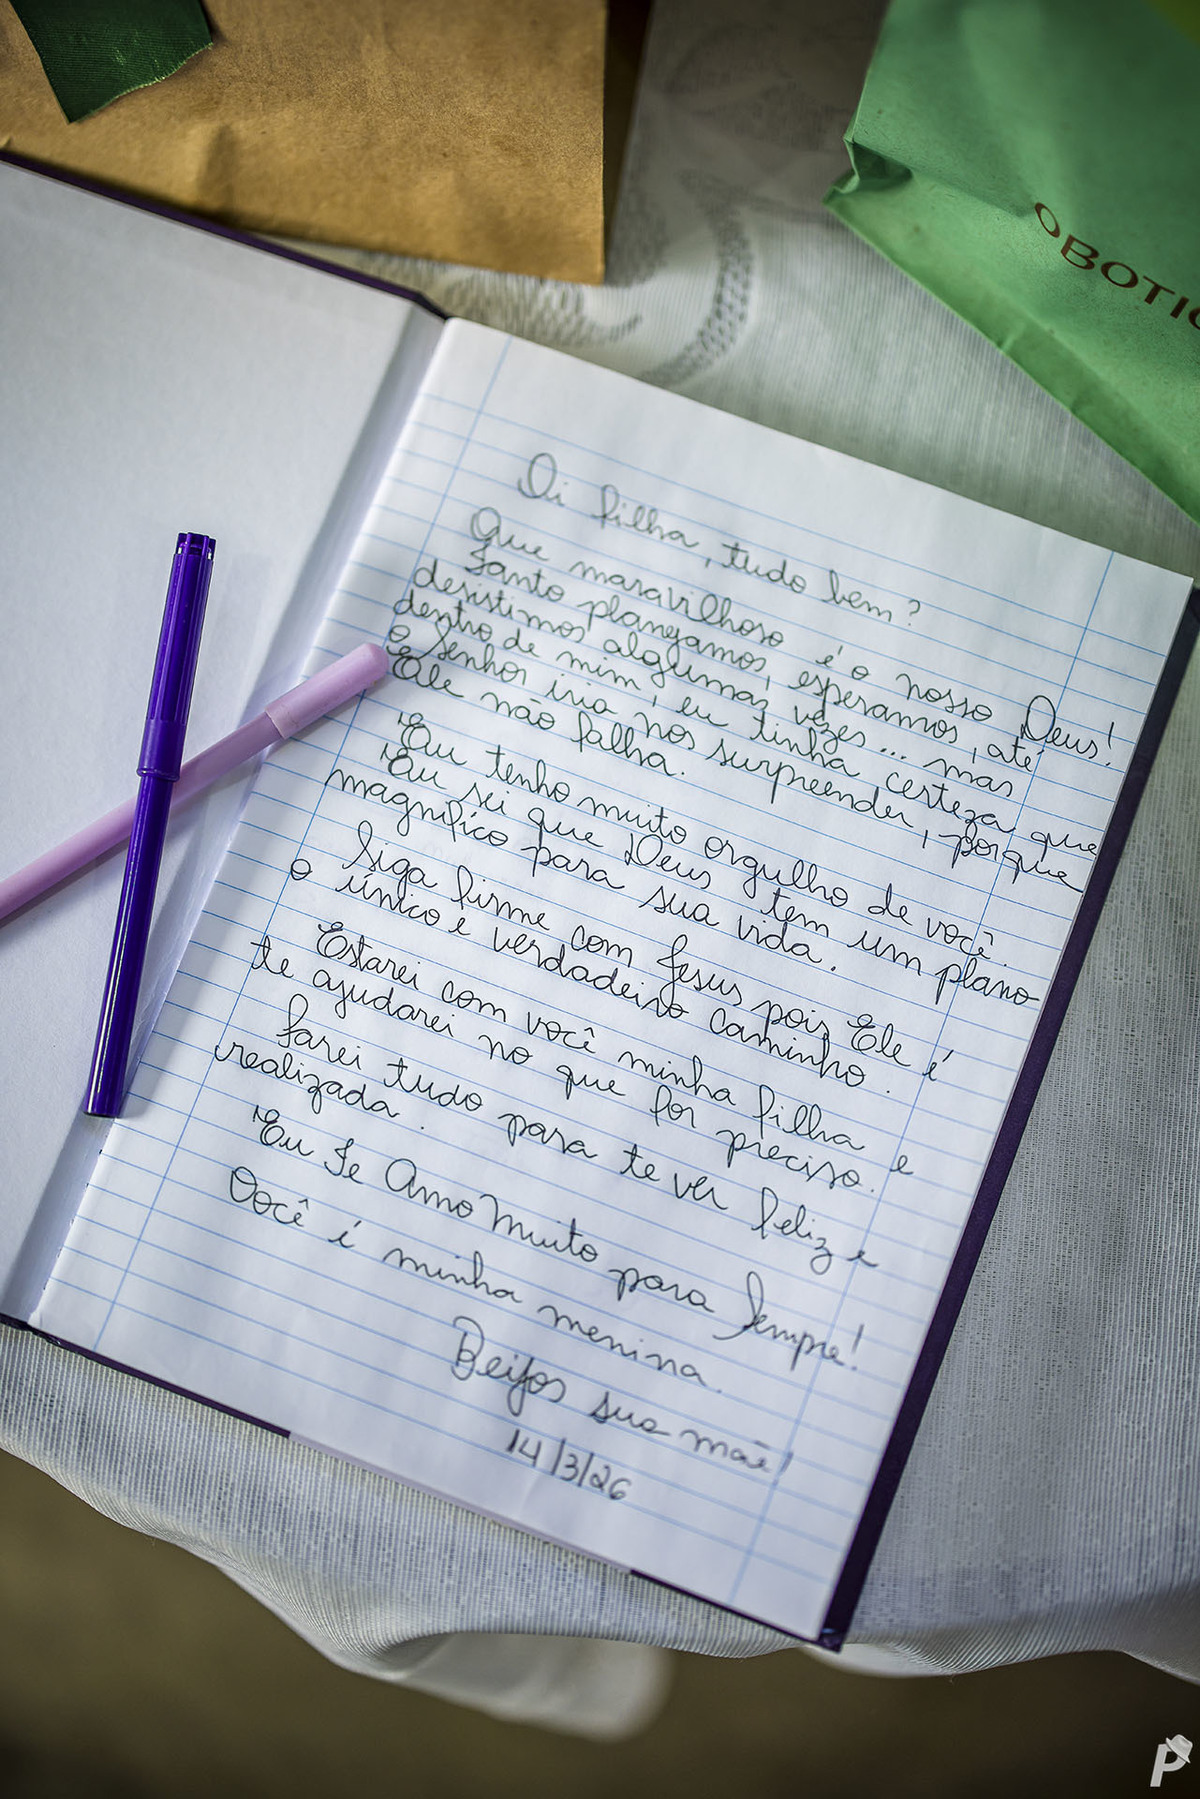 OBOTIC
Oi filha, tudo bem?
Que maravilhoso é o nosso Deus!
Tanto planejamos, esperamos, até
desistimos algumas vezes... mas
dentro de mim, eu tinha certeza que
o Senhor iria nos surpreender, porque
Ele não falha.
Eu tenho muito orgulho de você.
Eu sei que Deus tem um plano
magnífico para sua vida.
Siga firme com Jesus pois Ele é
o único e verdadeiro caminho.
Estarei com você minha filha e
te ajudarei no que for preciso. e
farei tudo para te ver feliz e
realizada.
Eu Te Amo Muito para Sempre!
Você é minha menina.
Beijos sua mãe!
14/3/26
P